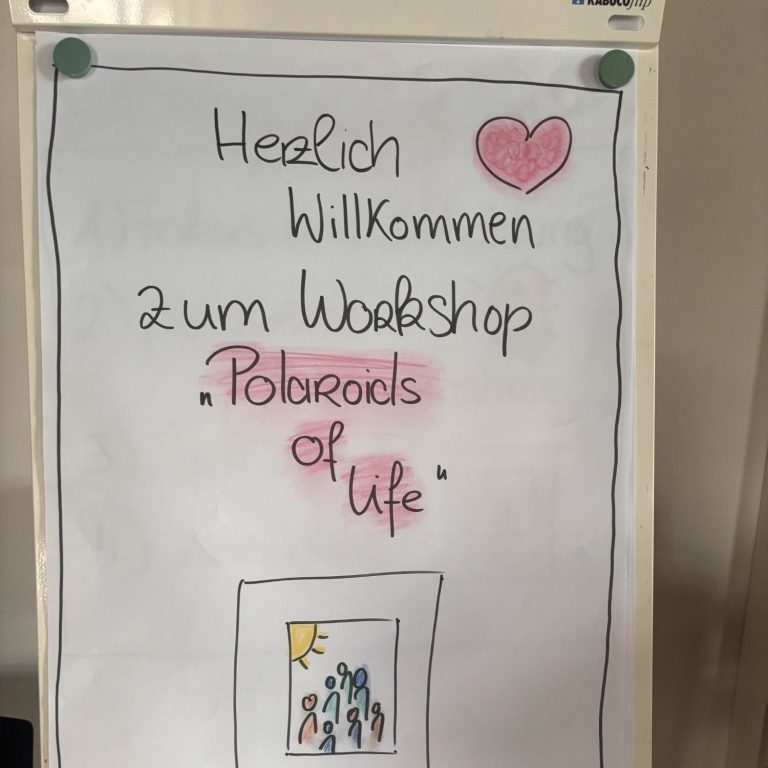 KABUCOflip
Herzlich
Willkommen
zum Workshop
"Polaroids
of
life"